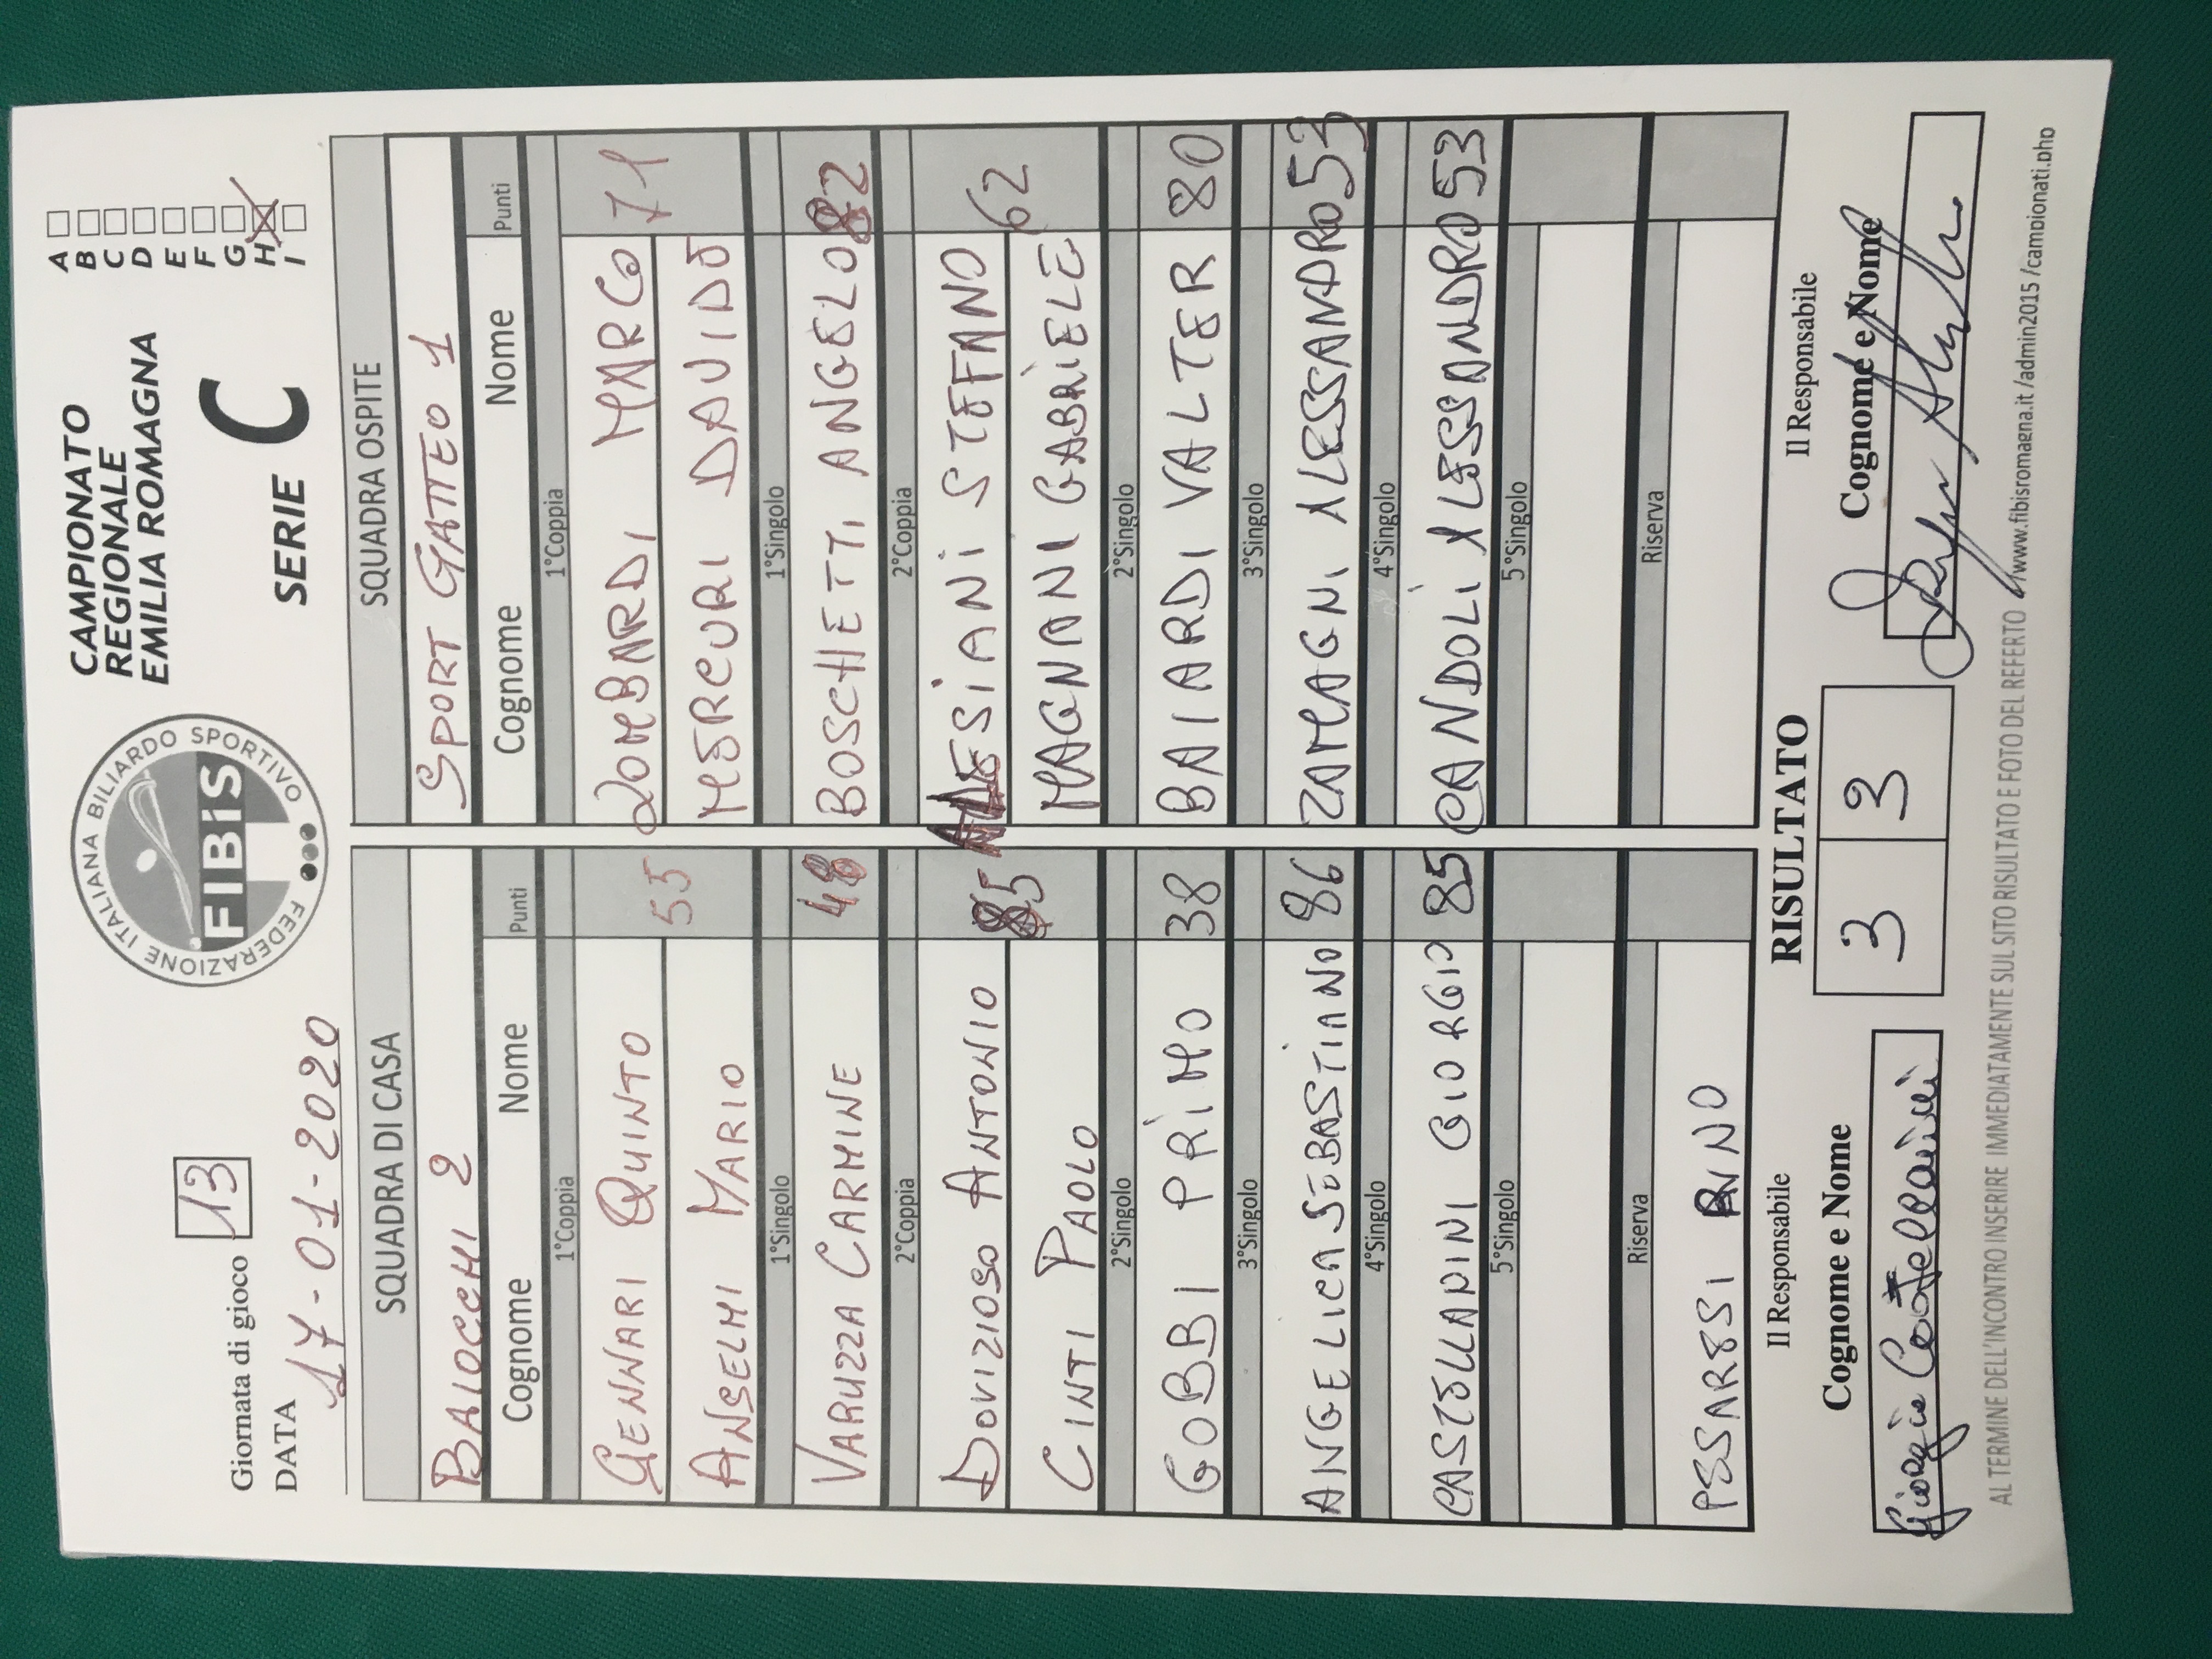 Giornata di gioco 13
DATA 17-01-2020
FEDERAZIONE ITALIANA BILIARDO SPORTIVO
FIBiS
CAMPIONATO
REGIONALE
EMILIA ROMAGNA
SERIE C
A
B
C
D
E
F
G
H
I
SQUADRA DI CASA
BAIOCCHI 2
Cognome Nome Punti
1°Coppia
GENNARI QUINTO 55
ANSELMI MARIO
1°Singolo
VARUZZA CARMINE 48
2°Coppia
DOVIZIOSO ANTONIO 85
CINTI PAOLO
2°Singolo
GOBBI PRIMO 38
3°Singolo
ANGELICA SEBASTIANO 86
4°Singolo
CASTELLARINI GIORGIO 85
5°Singolo
Riserva
PESSARESI RINO
SQUADRA OSPITE
SPORT GATTEO 1
Cognome Nome Punti
1°Coppia
LOMBARDI MARCO 71
MERCURI DAVIDE
1°Singolo
BOSCHETTI ANGELO 82
2°Coppia
ALESIANI STEFANO 62
MAGNANI GABRIELE
2°Singolo
BAIARDI VALTER 80
3°Singolo
ZAMAGNI ALESSANDRO 53
4°Singolo
CANDOLI ALESSANDRO 53
5°Singolo
Riserva
Il Responsabile RISULTATO Il Responsabile
Cognome e Nome 3 3 Cognome e Nome
Giorgio Castellarini
AL TERMINE DELL'INCONTRO INSERIRE IMMEDIATAMENTE SUL SITO RISULTATO E FOTO DEL REFERTO //www.fibisromagna.it /admin2015 /campionati.php